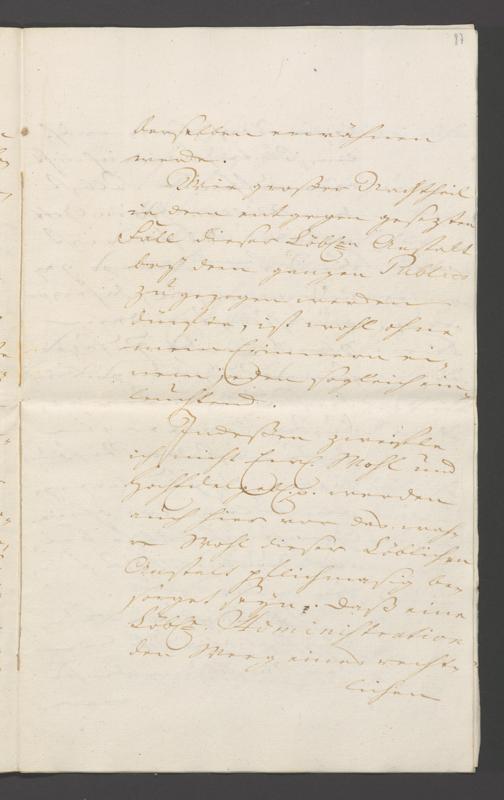 87
derselben erwähnen
werde.
Wie großer Nachtheil
in dem entgegen gesetzten
Fall dieser Löbl. Anstalt
bey dem ganzen Publico
zugezogen werden
dürfte, ist wohl ohne
mein Erinnern ei-
nem jeden sogleich ein-
leuchtend.
Indeßen zweifle
ich nicht Ewl. Wohl und
werden
auch hier vor das wah-
re Wohl dieser Löblichen
Anstalt pflichmasig be-
sorget seyn. Daß eine
Löbl. Administration
den Weeg eines recht-
lichen